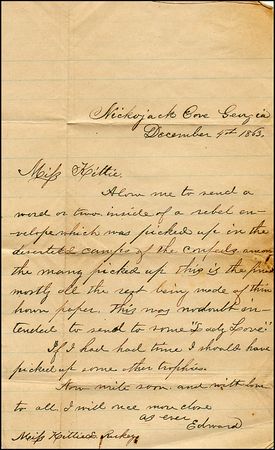 Nickojack Cove Georgia
December 9th 1863.
Miss Kittie.
Alow me to send a
word or two inside of a rebel en-
velope which was picked up in the
deserted camps of the Confeds, among
the many picked up this is the
mostly all the rest being made of thin
brown paper. this was no doubt in-
tended to send to some "Lady Love"
If I had had time I should have
picked up some other trophies.
Now write soon and with love
to all I will once more close
as ever
Edward
Miss Kittie